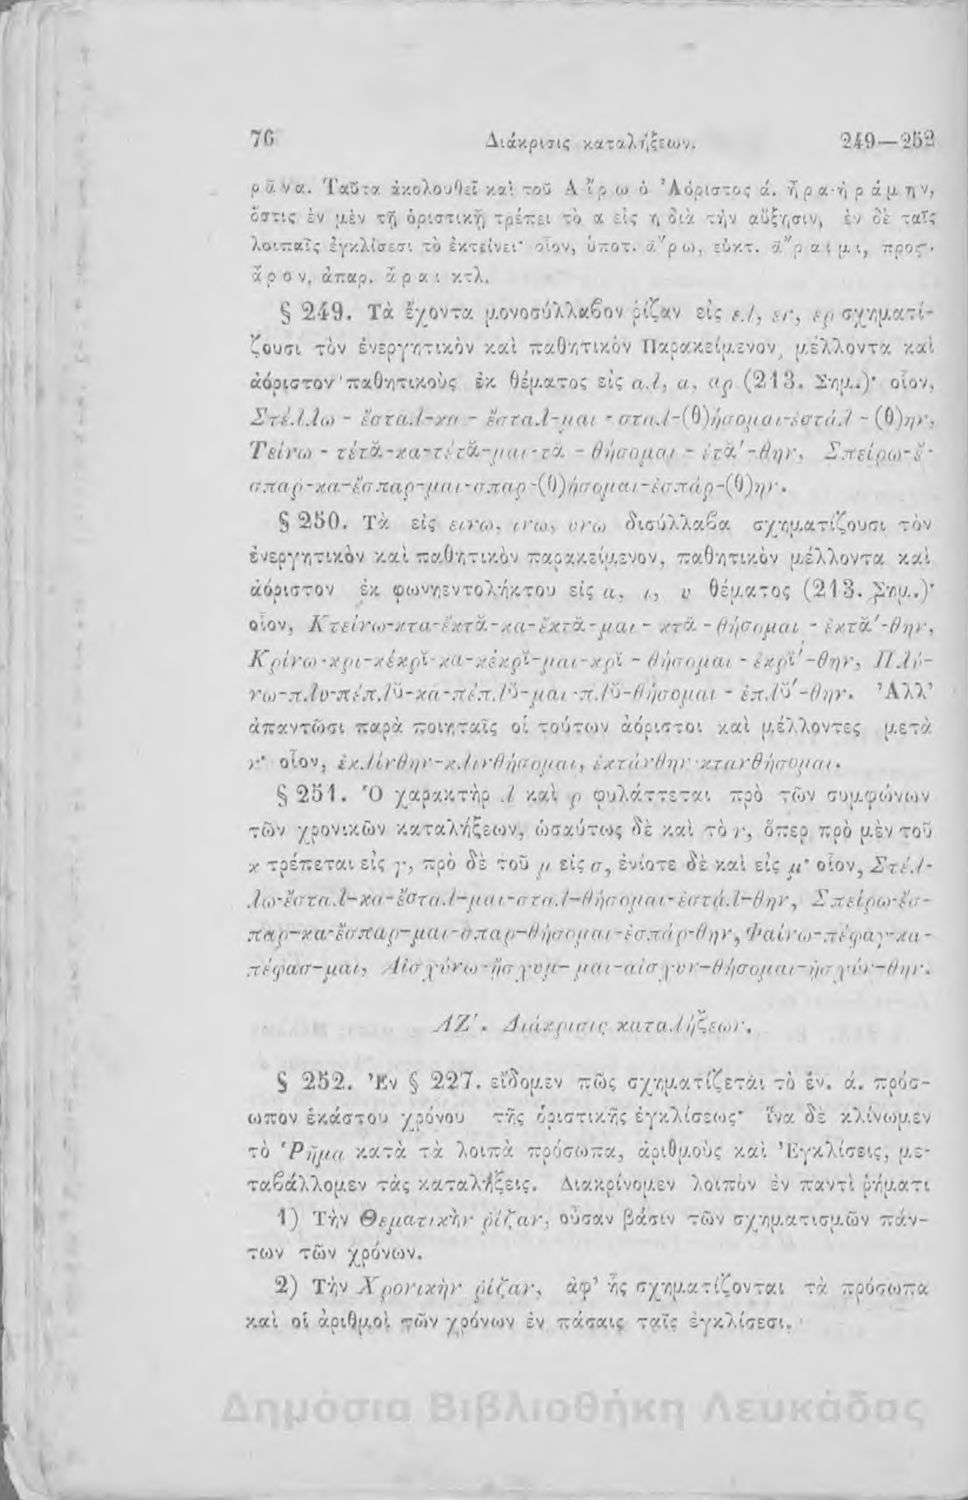 76 Διάκρισις καταλήξεων. 249—252
ρᾶνα. Ταῦτα ἀκολουθεῖ καὶ τοῦ Αἴρω ὁ Ἀόριστος ά. ἦρα-ἠράμην,
ὅστις ἐν μὲν τῇ ὁριστικῇ τρέπει τὸ α εἰς η διὰ τὴν αὔξησιν, ἐν δὲ ταῖς
λοιπαῖς ἐγκλίσεσι τὸ ἐκτείνει· οἷον, ὑποτ. ἄρω, εὐκτ. ἄραιμι, προς.
ἆρον, ἀπαρ. ἆραι κτλ.
§ 249. Τὰ ἔχοντα μονοσύλλαβον ῥίζαν εἰς ελ, εν, ερ σχηματί-
ζουσι τὸν ἐνεργητικὸν καὶ παθητικὸν Παρακείμενον, μέλλοντα καὶ
ἀόριστον παθητικοὺς ἐκ θέματος εἰς αλ, α, αρ (213. Σημ.)· οἷον,
Στέλλω - ἔσταλ-κα - ἔσταλ-μαι - σταλ-(θ)ήσομαι-ἐστάλ - (θ)ην,
Τείνω - τέτᾰ-κα-τέτᾰ-μαι-τᾰ - θήσομαι - ἐτᾰ́-θην, Σπείρω-ἔ-
σπαρ-κα-ἔσπαρ-μαι-σπαρ-(θ)ήσομαι-ἐσπάρ-(θ)ην.
§ 250. Τὰ εἰς εινω, ινω, υνω δισύλλαβα σχηματίζουσι τὸν
ἐνεργητικὸν καὶ παθητικὸν παρακείμενον, παθητικὸν μέλλοντα καὶ
ἀόριστον ἐκ φωνηεντολήκτου εἰς α, ι, υ θέματος (213. Σημ.)·
οἷον, Κτείνω-κτα-ἔκτᾰ-κα-ἔκτᾰ-μαι - κτᾰ - θήσομαι - ἐκτᾰ́-θην,
Κρίνω-κρι-κέκρῐ-κα-κέκρῐ-μαι-κρῐ - θήσομαι - ἐκρῐ́-θην, Πλύ-
νω-πλυ-πέπλῠ-κα-πέπλῠ-μαι-πλῠ-θήσομαι - ἐπλῠ́-θην. Ἀλλ’
ἀπαντῶσι παρὰ ποιηταῖς οἱ τούτων ἀόριστοι καὶ μέλλοντες μετὰ
ν· οἷον, ἐκλίνθην-κλινθήσομαι, ἐκτάνθην-κτανθήσομαι.
§ 251. Ὁ χαρακτὴρ λ καὶ ρ φυλάττεται πρὸ τῶν συμφώνων
τῶν χρονικῶν καταλήξεων, ὡσαύτως δὲ καὶ τὸ ν, ὅπερ πρὸ μὲν τοῦ
κ τρέπεται εἰς γ, πρὸ δὲ τοῦ μ εἰς σ, ἐνίοτε δὲ καὶ εἰς μ· οἷον, Στέλ-
λω-ἔσταλ-κα-ἔσταλ-μαι-σταλ-θήσομαι-ἐστάλ-θην, Σπείρω-ἔσ-
παρ-κα-ἔσπαρ-μαι-σπαρ-θήσομαι-ἐσπάρ-θην, Φαίνω-πέφαγ-κα-
πέφασ-μαι, Αἰσχύνω-ᾔσχυμ-μαι-αἰσχυν-θήσομαι-ᾐσχύν-θην.
ΛΖ΄. Διάκρισις καταλήξεων.
§ 252. Ἐν § 227. εἴδομεν πῶς σχηματίζεται τὸ ἑν. ά. πρόσ-
ωπον ἑκάστου χρόνου τῆς ὁριστικῆς ἐγκλίσεως· ἵνα δὲ κλίνωμεν
τὸ Ῥῆμα κατὰ τὰ λοιπὰ πρόσωπα, ἀριθμοὺς καὶ Ἐγκλίσεις, με-
ταβάλλομεν τὰς καταλήξεις. Διακρίνομεν λοιπὸν ἐν παντὶ ῥήματι
1) Τὴν Θεματικὴν ῥίζαν, οὖσαν βάσιν τῶν σχηματισμῶν πάν-
των τῶν χρόνων.
2) Τὴν Χρονικὴν ῥίζαν, ἀφ’ ἧς σχηματίζονται τὰ πρόσωπα
καὶ οἱ ἀριθμοὶ τῶν χρόνων ἐν πάσαις ταῖς ἐγκλίσεσι.
Δημόσια Βιβλιοθήκη Λευκάδας